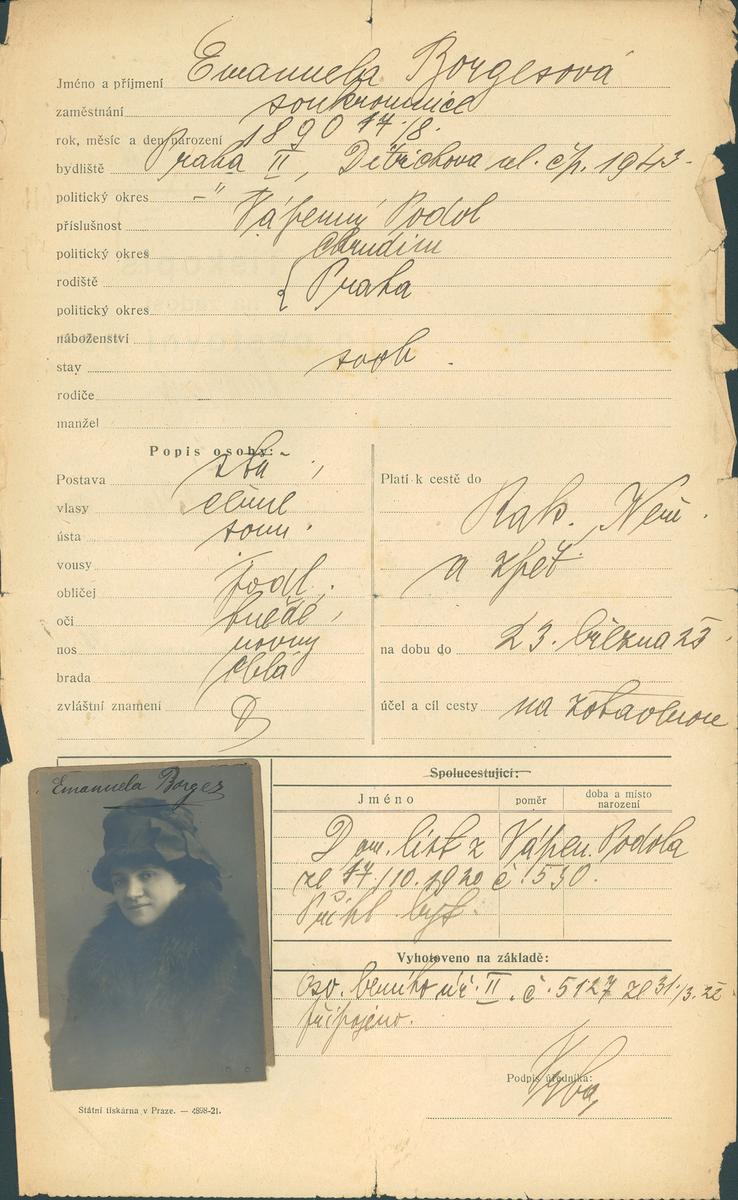 Jméno a příjmení Emanuela Borgesová
zaměstnání soukromnice
rok, měsíc a den narození 1890 17./8.
bydliště Praha II, Dittrichova ul. čp. 1943
politický okres –"–
příslušnost Vápenný Podol
politický okres Chrudim
rodiště { Praha
politický okres
náboženství
stav svob.
rodiče
manžel
Popis osoby:
Postava
vlasy černé
ústa soum.
vousy
obličej podl.
oči hnědé
nos rovný
brada oblá
zvláštní znamení
Platí k cestě do
Rak. Něm.
a zpět
na dobu do 23. března 25.
účel a cíl cesty na zotavenou
Emanuela Borges
Spolucestující:
Jméno poměr doba a místo narození
Dom. list z Vápen. Podola
ze 17./10. 1920 č. 530.
Přihl. byt.
Vyhotoveno na základě:
č. 5127 ze 31./3. 22
připojeno.
Podpis úředníka:
Státní tiskárna v Praze. — 4898-21.